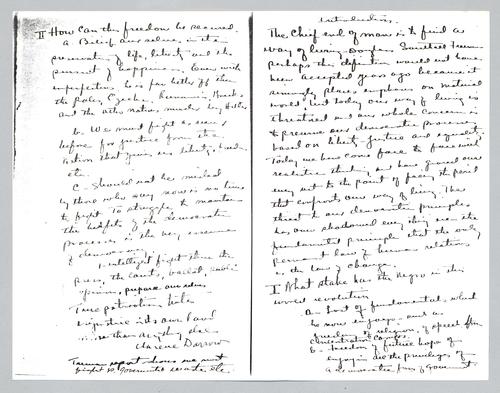 II How can this freedom be secured.
a. Belief our selves, in its
promoting of life, liberty and the
pursuit of happiness, even with
imperfections, is so far better off than
the Poles, Czechs,
and the other nations under Hitler
b. We must fight as never
before for justice from the
nation that gives us liberty, freedom
etc.
C. Should not be misled
by those who say now is no time
to fight. To struggle to maintain
the benefits of the democratic
processes is the very essence
of democracy.
1. intelligent fight thru the
Press, the courts, ballot, public
opinion, prepare our selves.
True patriotism hates
injustice in its own land
more than anything else
Clarence Darrow
Truman report shows we must
fight
Introduction.
The Chief end of man is to find a
way of living - Douglas Southall Freeman
Perhaps this definition would not have
been accepted years ago because it
seemingly places emphasis on material
world, but today our way of living is
threatened and our whole concern is
to preserve our democratic processes
based on liberty, justice and equality.
Today we have come face to face with
realistic thinking and have graved our
way not to the point of facing the peril
that confronts our way of living. The
threat to our democratic principles
has over shadowed every thing even the
fundamental principle that the only
permanent law of human relations
is the law of change.
I What stake has the Negro in this
world revolution
a. Sort of fundamentals which
he now enjoys - such as
freedom of religion, of speech from
Concentration Camps.
b - freedom of future hope of
enjoying all the privileges of
a democratic form of Government.